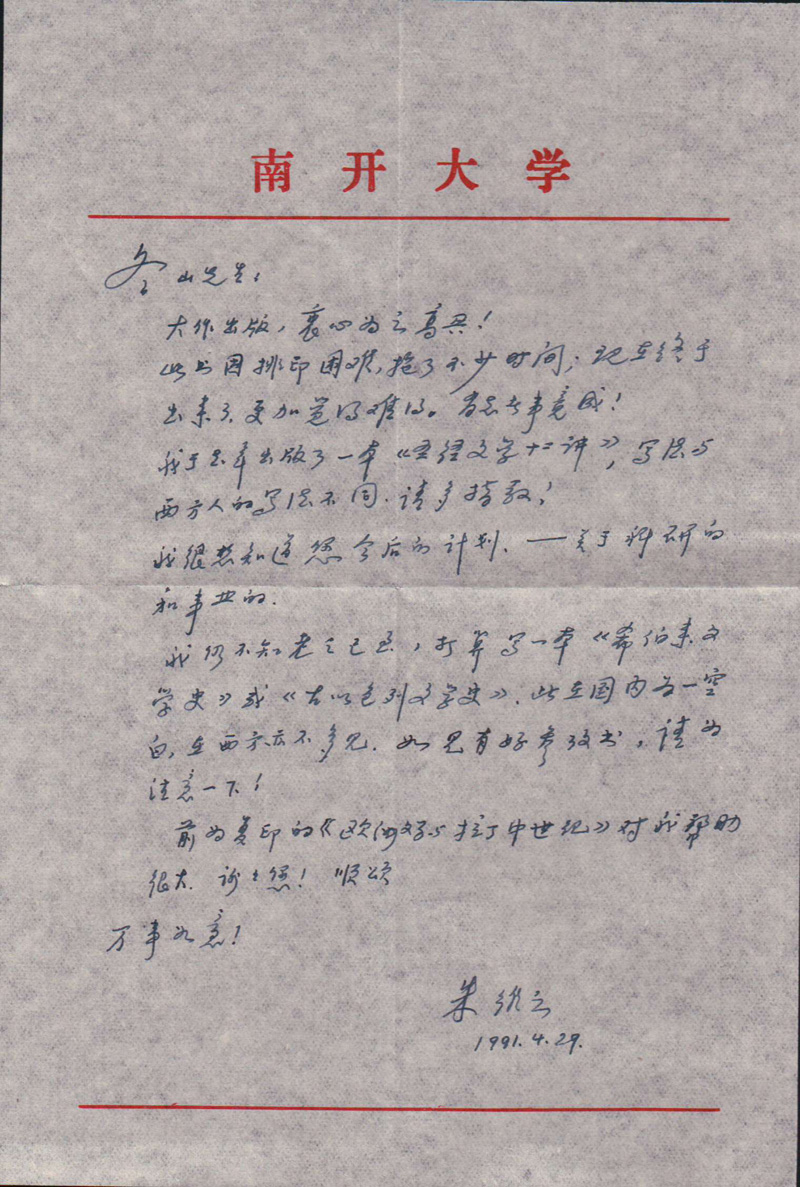 南开大学
山先生：
大作出版，衷心为之高兴！
此书因排印困难，拖了不少时间；现在终于
出来了，更加觉得难得。有志者事竟成！
我于去年出版了一本《圣经文学十二讲》，写法与
西方人的写法不同．请多指教！
我很想知道您今后的计划．——关于科研的
和事业的．
我仍不知老之已至，打算写一本《希伯来文
学史》或《古以色列文学史》．此在国内为一空
白，在西方亦不多见．如见有好参考书，请为
注意一下！
前为复印的《欧洲文学与拉丁中世纪》对我帮助
很大．谢谢您！顺颂
万事如意！
朱维之
1991.4.29.